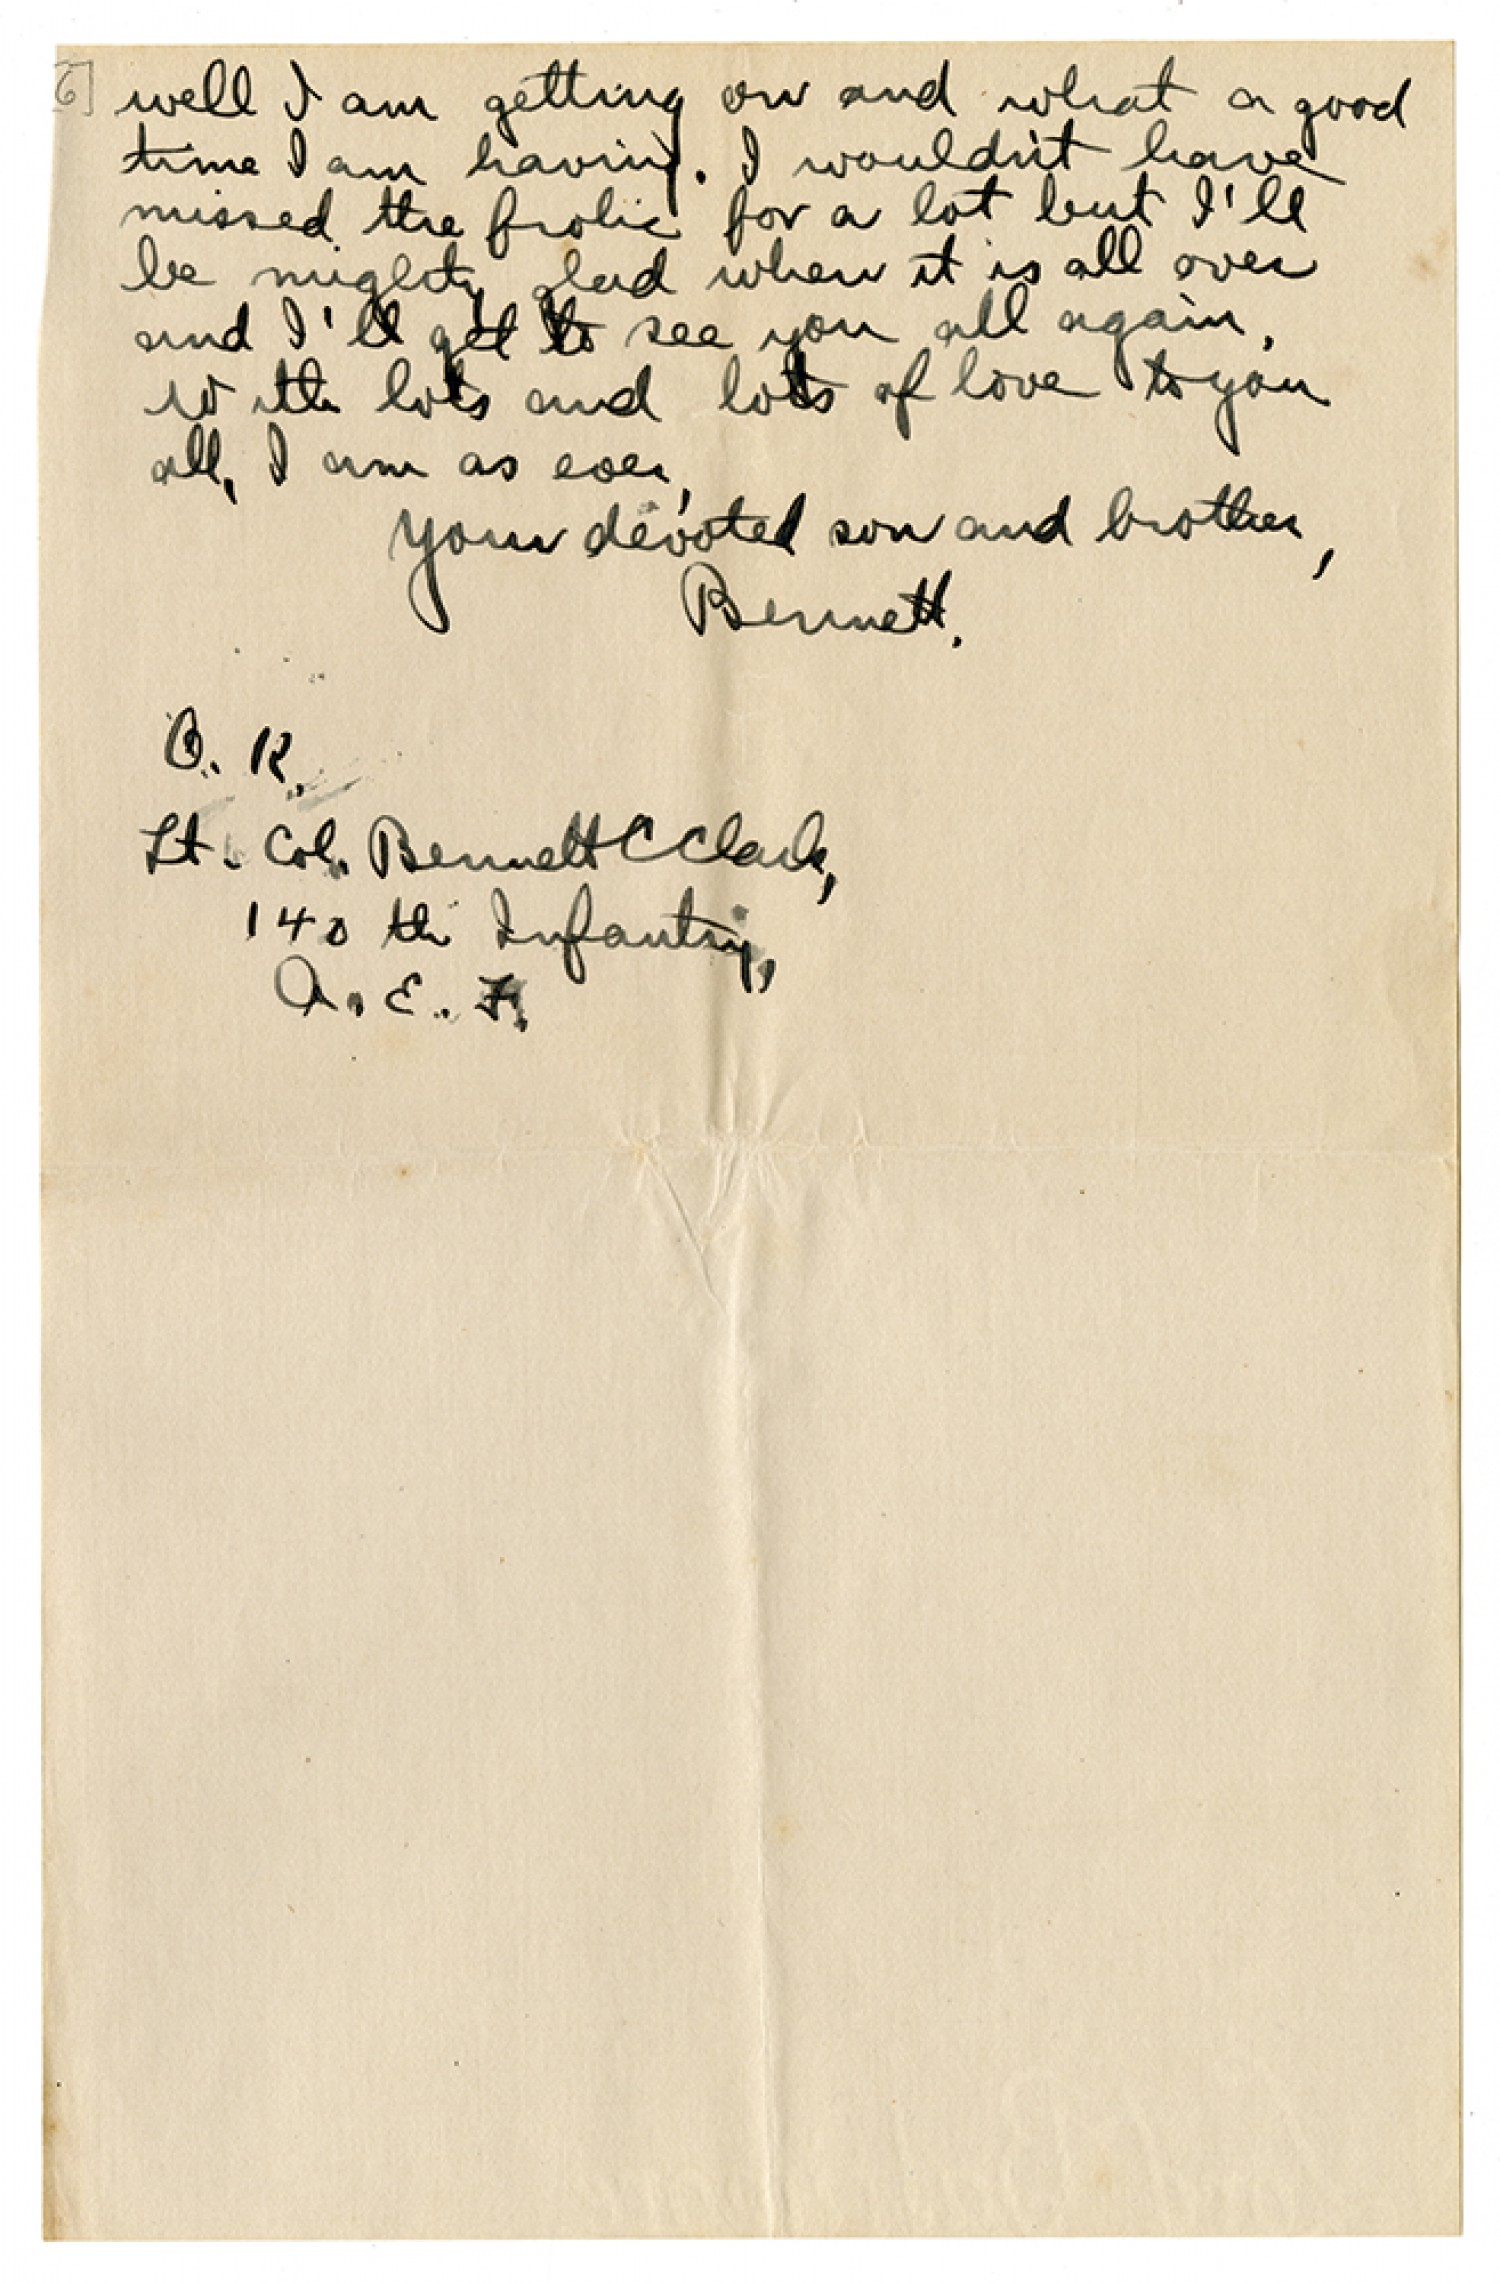 6]
well I am getting on and what a good
time I am having. I wouldn't have
missed the frolic for a lot but I'll
be mighty glad when it is all over
and I'll get to see you all again.
With lots and lots of love to you
all, I am as ever,
Your devoted son and brother,
Bennett.
O. K.
Lt. Col. Bennett C Clark,
140 th Infantry,
A. E. F.